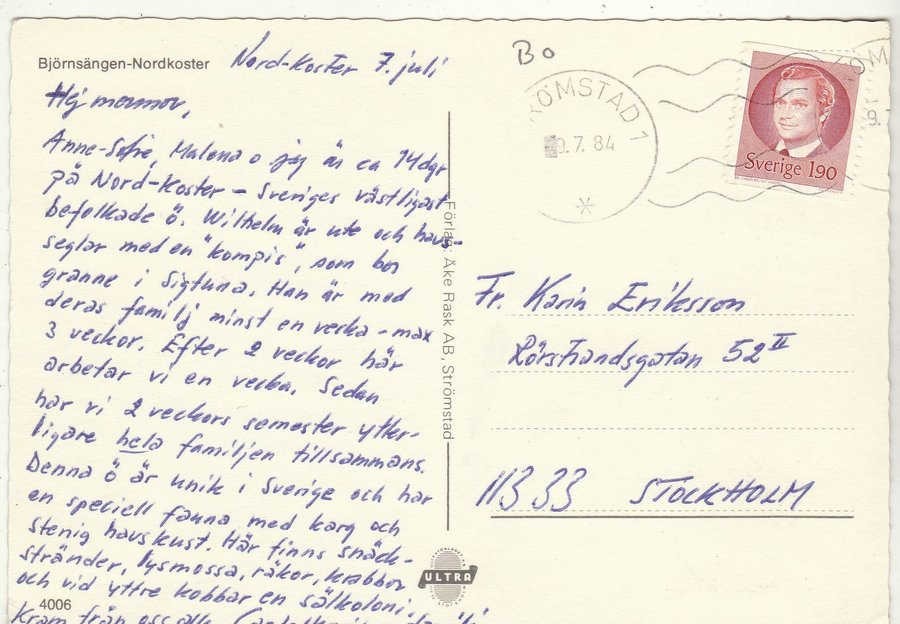 Björnsängen-Nordkoster
Nord-Koster 7. juli
Hej mormor,
Anne-Sofie, Malena o jag är ca 14 dgr
på Nord-Koster – Sveriges västligast
befolkade ö. Wilhelm är ute och havs-
seglar med en "kompis", som bor
granne i Sigtuna. Han är med
deras familj minst en vecka – max
3 veckor. Efter 2 veckor här
arbetar vi en vecka. Sedan
har vi 2 veckors semester ytter-
ligare hela familjen tillsammans.
Denna ö är unik i Sverige och har
en speciell fauna med karg och
stenig havskust. Här finns snäck-
stränder, lysmossa, räkor, krabbor
och vid yttre kobbar en sälkoloni.
Kram från oss alla
4006
Förlag: Åke Rask AB, Strömstad
ULTRA
Bo
STRÖMSTAD 1
9.7.84
Sverige 190
Fr. Karin Eriksson
Rörstrandsgatan 52 II
113 33 STOCKHOLM